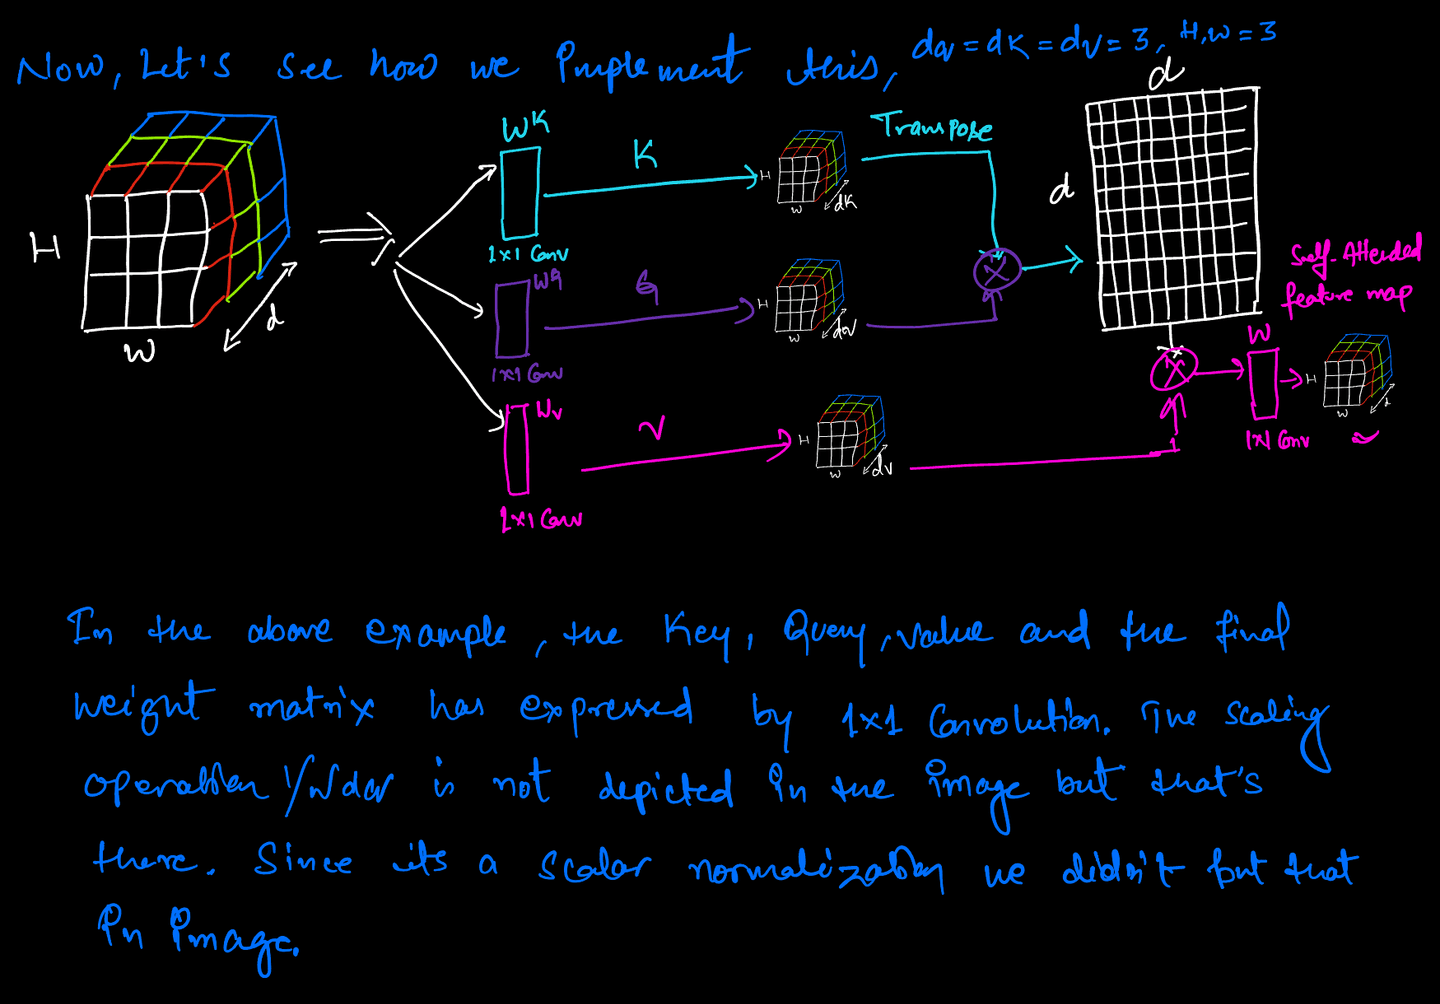 Now, Let's see how we Implement this, dq = dK = dv = 3, H,W = 3
d
WK
K
Transpose
H
W
dK
d
1x1 Conv
H
d
W
WQ
Q
H
W
dq
1x1 Conv
Self-Attended
feature map
W
H
W
d
1x1 Conv
Wv
V
H
W
dv
1x1 Conv
In the above example, the Key, Query, value and the final
weight matrix has expressed by 1x1 Convolution. The scaling
operation 1/√dq is not depicted in the image but that's
there. Since its a scalar normalization we didn't put that
in image.